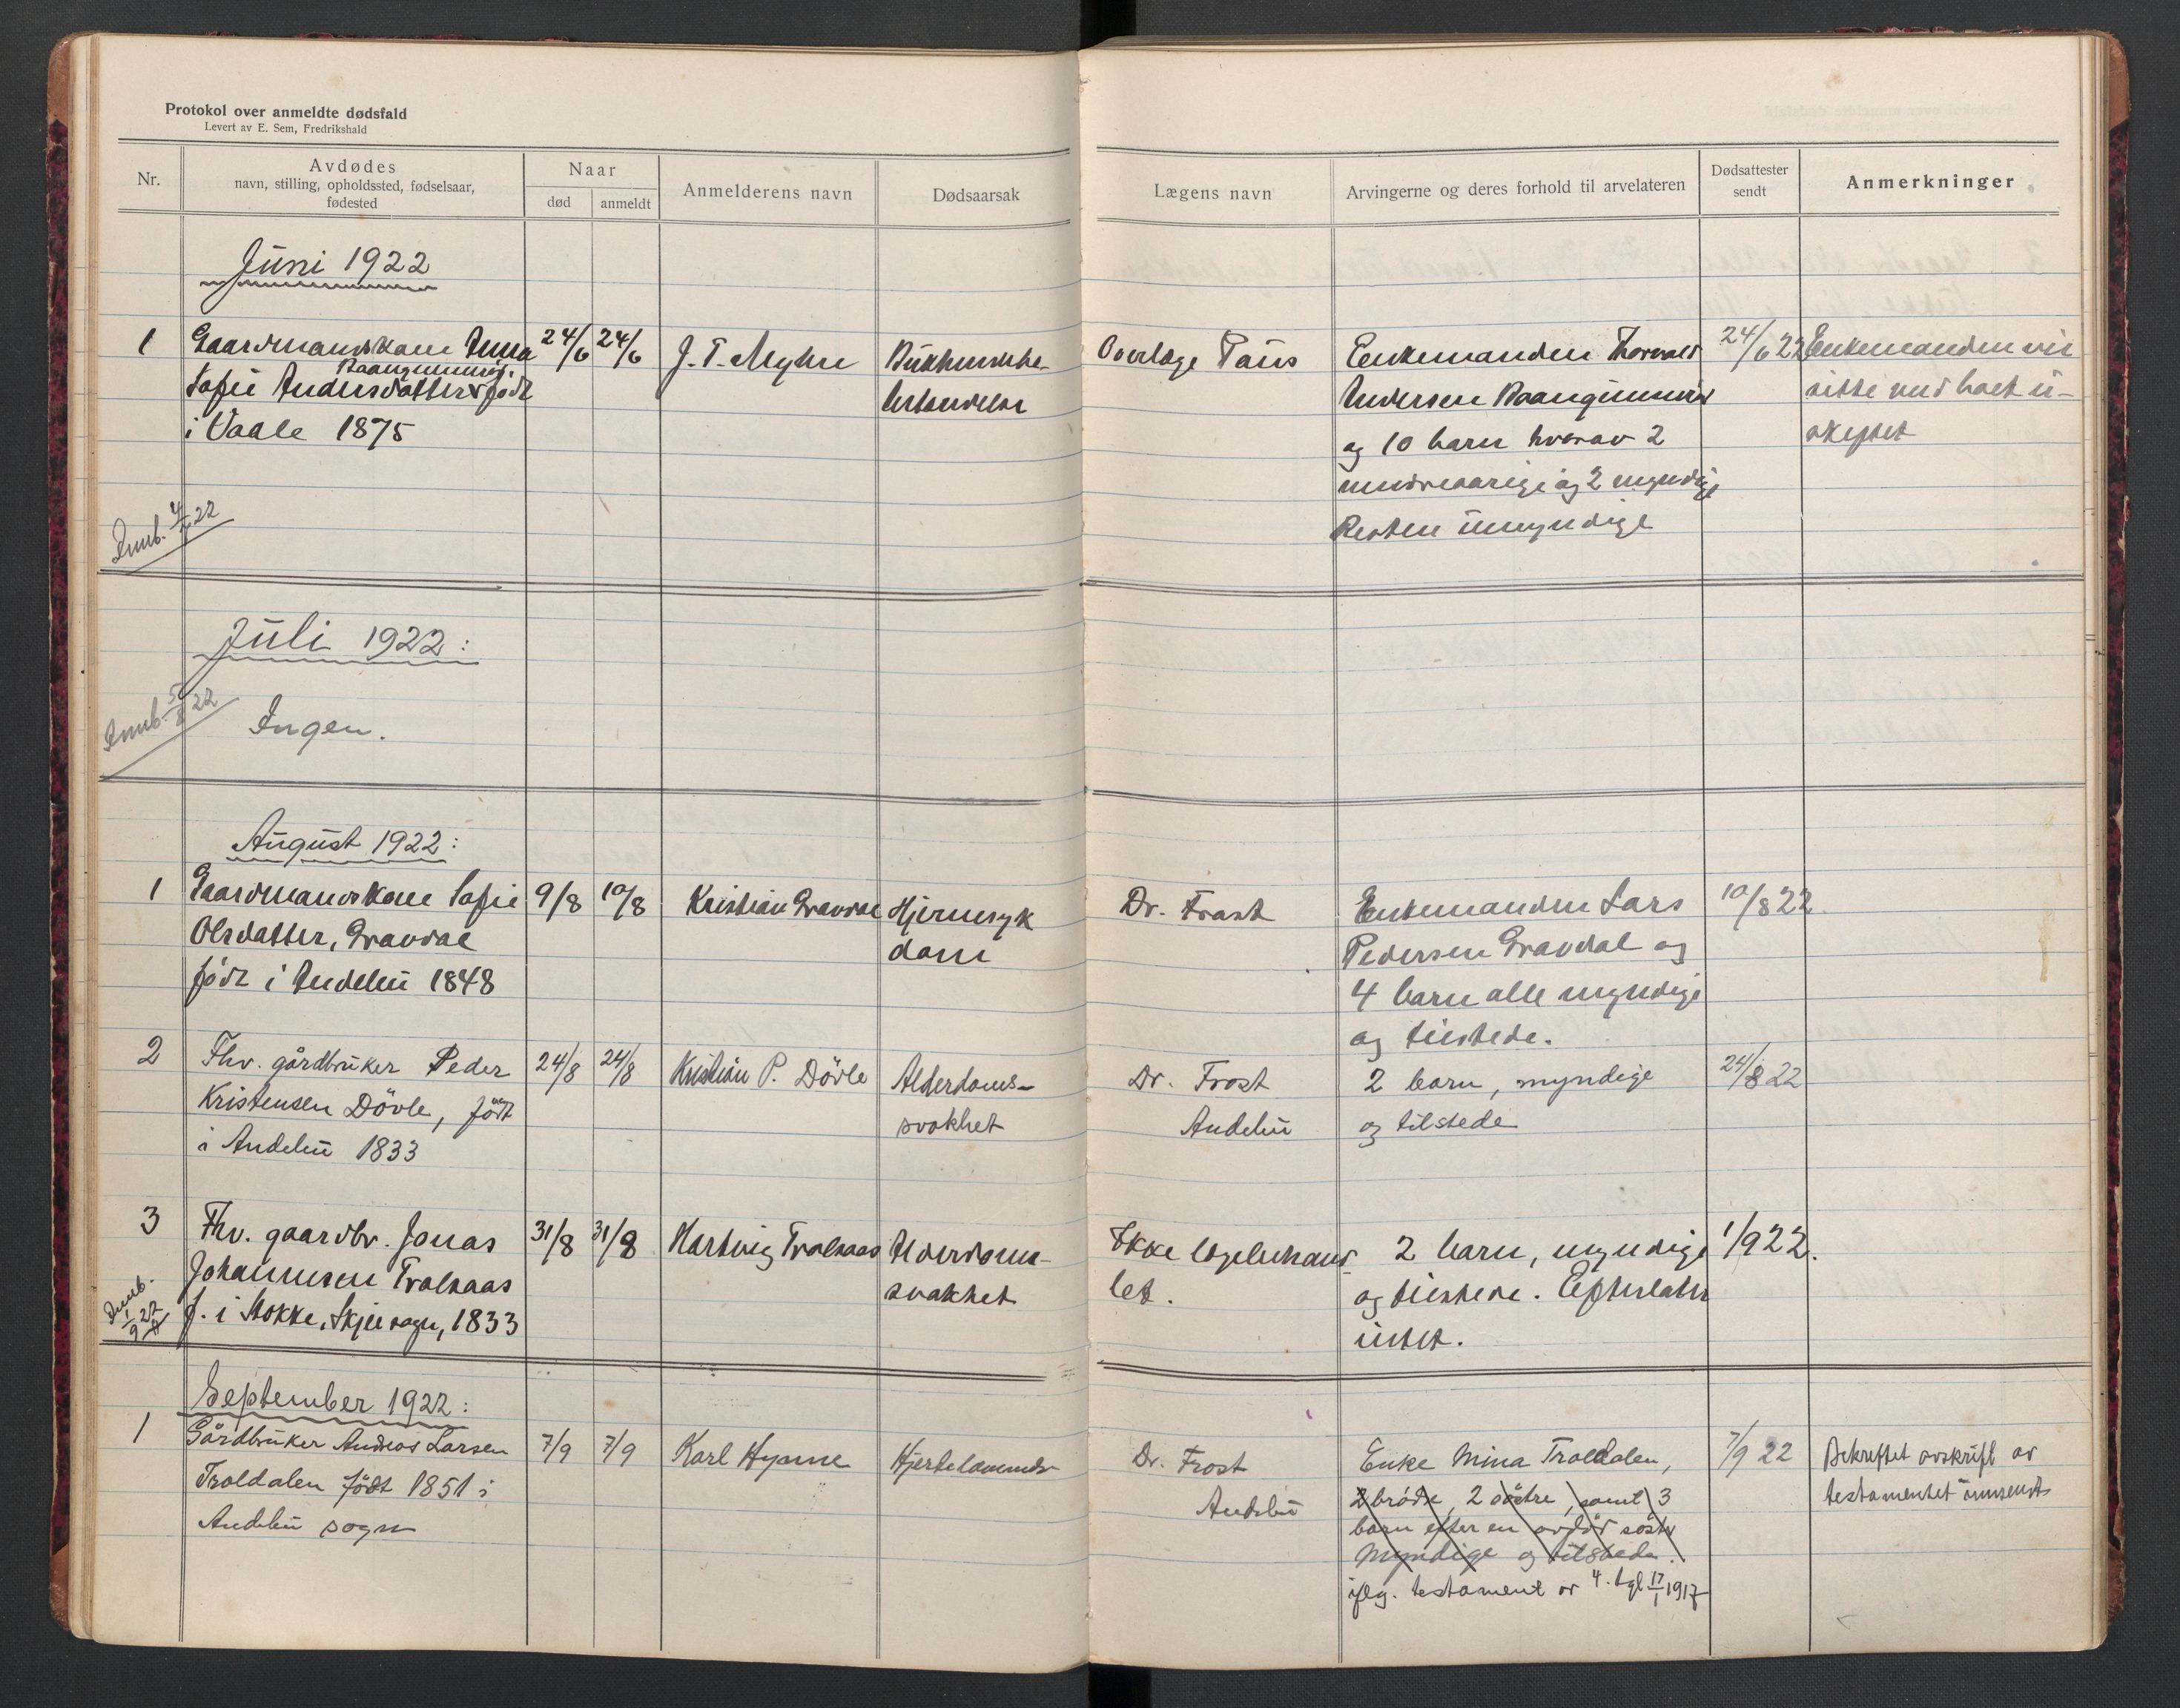 Protokol over anmeldte dødsfald
Levert av E. Sem, Fredrikshald
Nr.
Avdødes
navn, stilling, opholdssted, fødselsaar,
fødested
Naar
død
anmeldt
Anmelderens navn
Dødsaarsak
Lægens navn
Arvingerne og deres forhold til arvelateren
Dødsattester
sendt
Anmerkninger
Juni 1922
1
Gaardmandskone Anna
Raangunnung.
Sofie Andersdatter født
i Vaale 1875
24/6
24/6
J. T. Myhre
betændelse
Overlæge Paus
Enkemanden Thorvald
Andersen
og 10 barn hvorav 2
mindreaarige og 2 myndige
Resten umyndige
24/6 22
Enkemanden vil
sitte med boet u-
skiftet
Innb. 4/7 22
Juli 1922:
Innb. 5/8 22
Ingen.
August 1922:
1
Gaardmandskone Sofie
Olsdatter, Gravdal
född i Andebu 1848
9/8
10/8
Kristian Gravdal
Hjernesyk
dom
Dr. Frost
Enkemanden Lars
Pedersen Gravdal og
4 barn alle myndige
og tilstede.
10/8 22
2
Fhv. gårdbruker Peder
Kristensen Dövle, født
i Andebu 1833
24/8
24/8
Kristian P. Dövle
Alderdoms-
svakhet
Dr. Frost
Andebu
2 barn, myndige
og tilstede
24/8 22
3
Fhv. gaardbr. Jonas
Johannesen Trolsaas
f. i Stokke, Skjee sogn, 1833
31/8
31/8
Hartvig Trolsaas
Alderdoms-
svakhet
Ikke lægebehand-
let.
2 barn, myndige
og tilstede. Efterlater
intet.
1/9 22.
Innb.
1/9 22
September 1922:
1
Gårdbruker Andreas Larsen
Troldalen født 1851 i
Andebu sogn
7/9
7/9
Karl Hynne
Hjertelammelse
Dr. Frost
Andebu
Enke Mina Troldalen,
2 brödre, 2 söstre, samt 3
barn efter en avdöd söster
Myndige og tilstede.
iflg. testament av 4. tgl 17/1 1917
7/9 22
Bekreftet avskrift av
testamentet innsendt